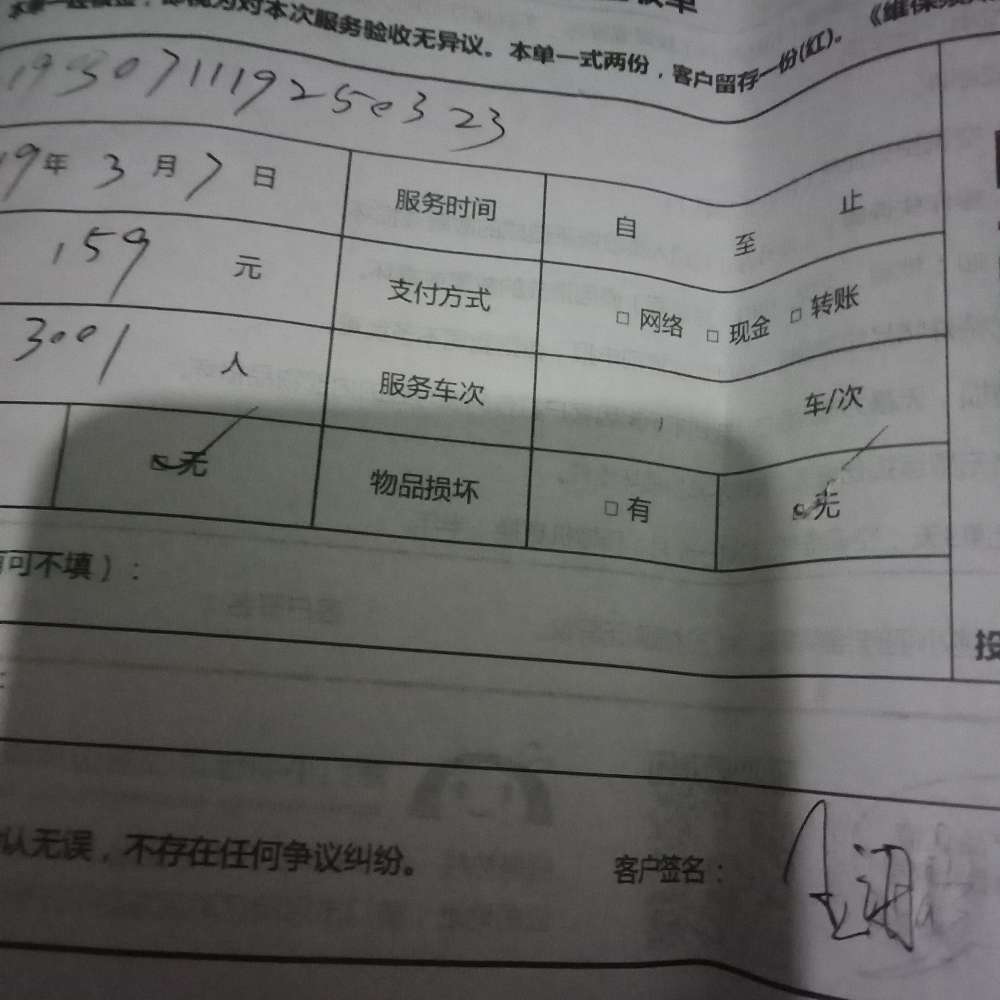 本单一经签金，即视为对本次服务验收无异议。本单一式两份，客户留存一份(红)。《维保
1930711192503 23
19年 3 月 7 日 服务时间 自 至 止
159 元 支付方式 □ 网络 □ 现金 □ 转账
3001 人 服务车次 1 车/次
□无 物品损坏 □ 有 □无
可不填）：
投
认无误，不存在任何争议纠纷。 客户签名：